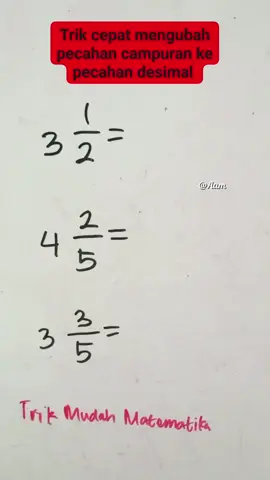 Trik cepat mengubah
pecahan campuran ke
pecahan desimal
3 1/2 =
@Alam
4 2/5 =
3 3/5 =
Trik Mudah Matematika